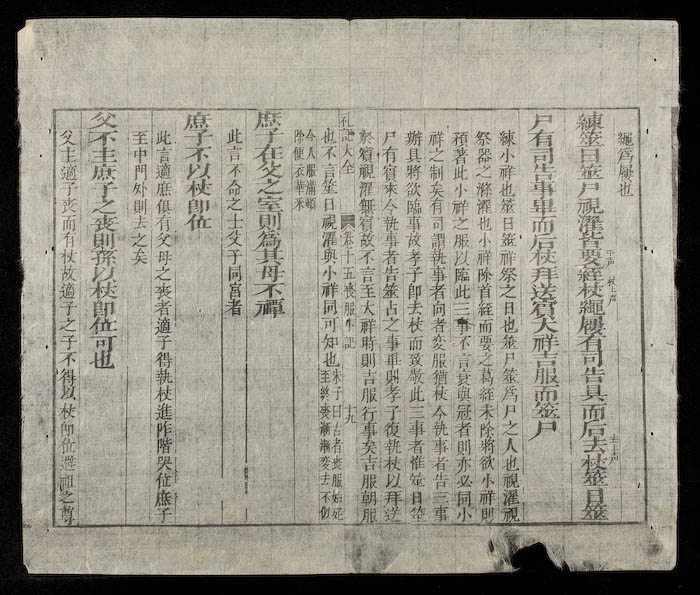 繩爲屨也
練筮日筮尸視濯皆要絰杖繩屨有司告具而后去杖筮日筮
平声 杖上声 去上声
尸有司告事畢而后杖拜送賓大祥吉服而筮尸
練小祥也筮日筮祥祭之日也筮尸筮爲尸之人也視濯視
祭器之滌濯也小祥除首絰而要之葛絰未除將欲小祥則
預著此小祥之服以臨此三事不言衰與冠者則亦必同小
祥之制矣有司謂執事者向者変服猶杖今執事者告三事
辦具將欲臨事故孝子即去杖而致敬此三事者惟筮日筮
尸有賓來今執事者告筮占之事畢則孝子復執杖以拜送
於賓視濯無賓故不言至大祥時則吉服行事矣吉服朝服
礼記大全 卷十五 喪服小記 十九
也不言筮日視濯與小祥同可知也朱子曰古者喪服始死
至終喪漸漸変去不似
今人服滿頓
除便衣華采
庶子在父之室則爲其母不禫
此言不命之士父子同宮者
庶子不以杖即位
此言適庶俱有父母之喪者適子得執杖進阼階哭位庶子
至中門外則去之矣
父不主庶子之喪則孫以杖即位可也
父主適子喪而有杖故適子之子不得以杖即位避祖之尊